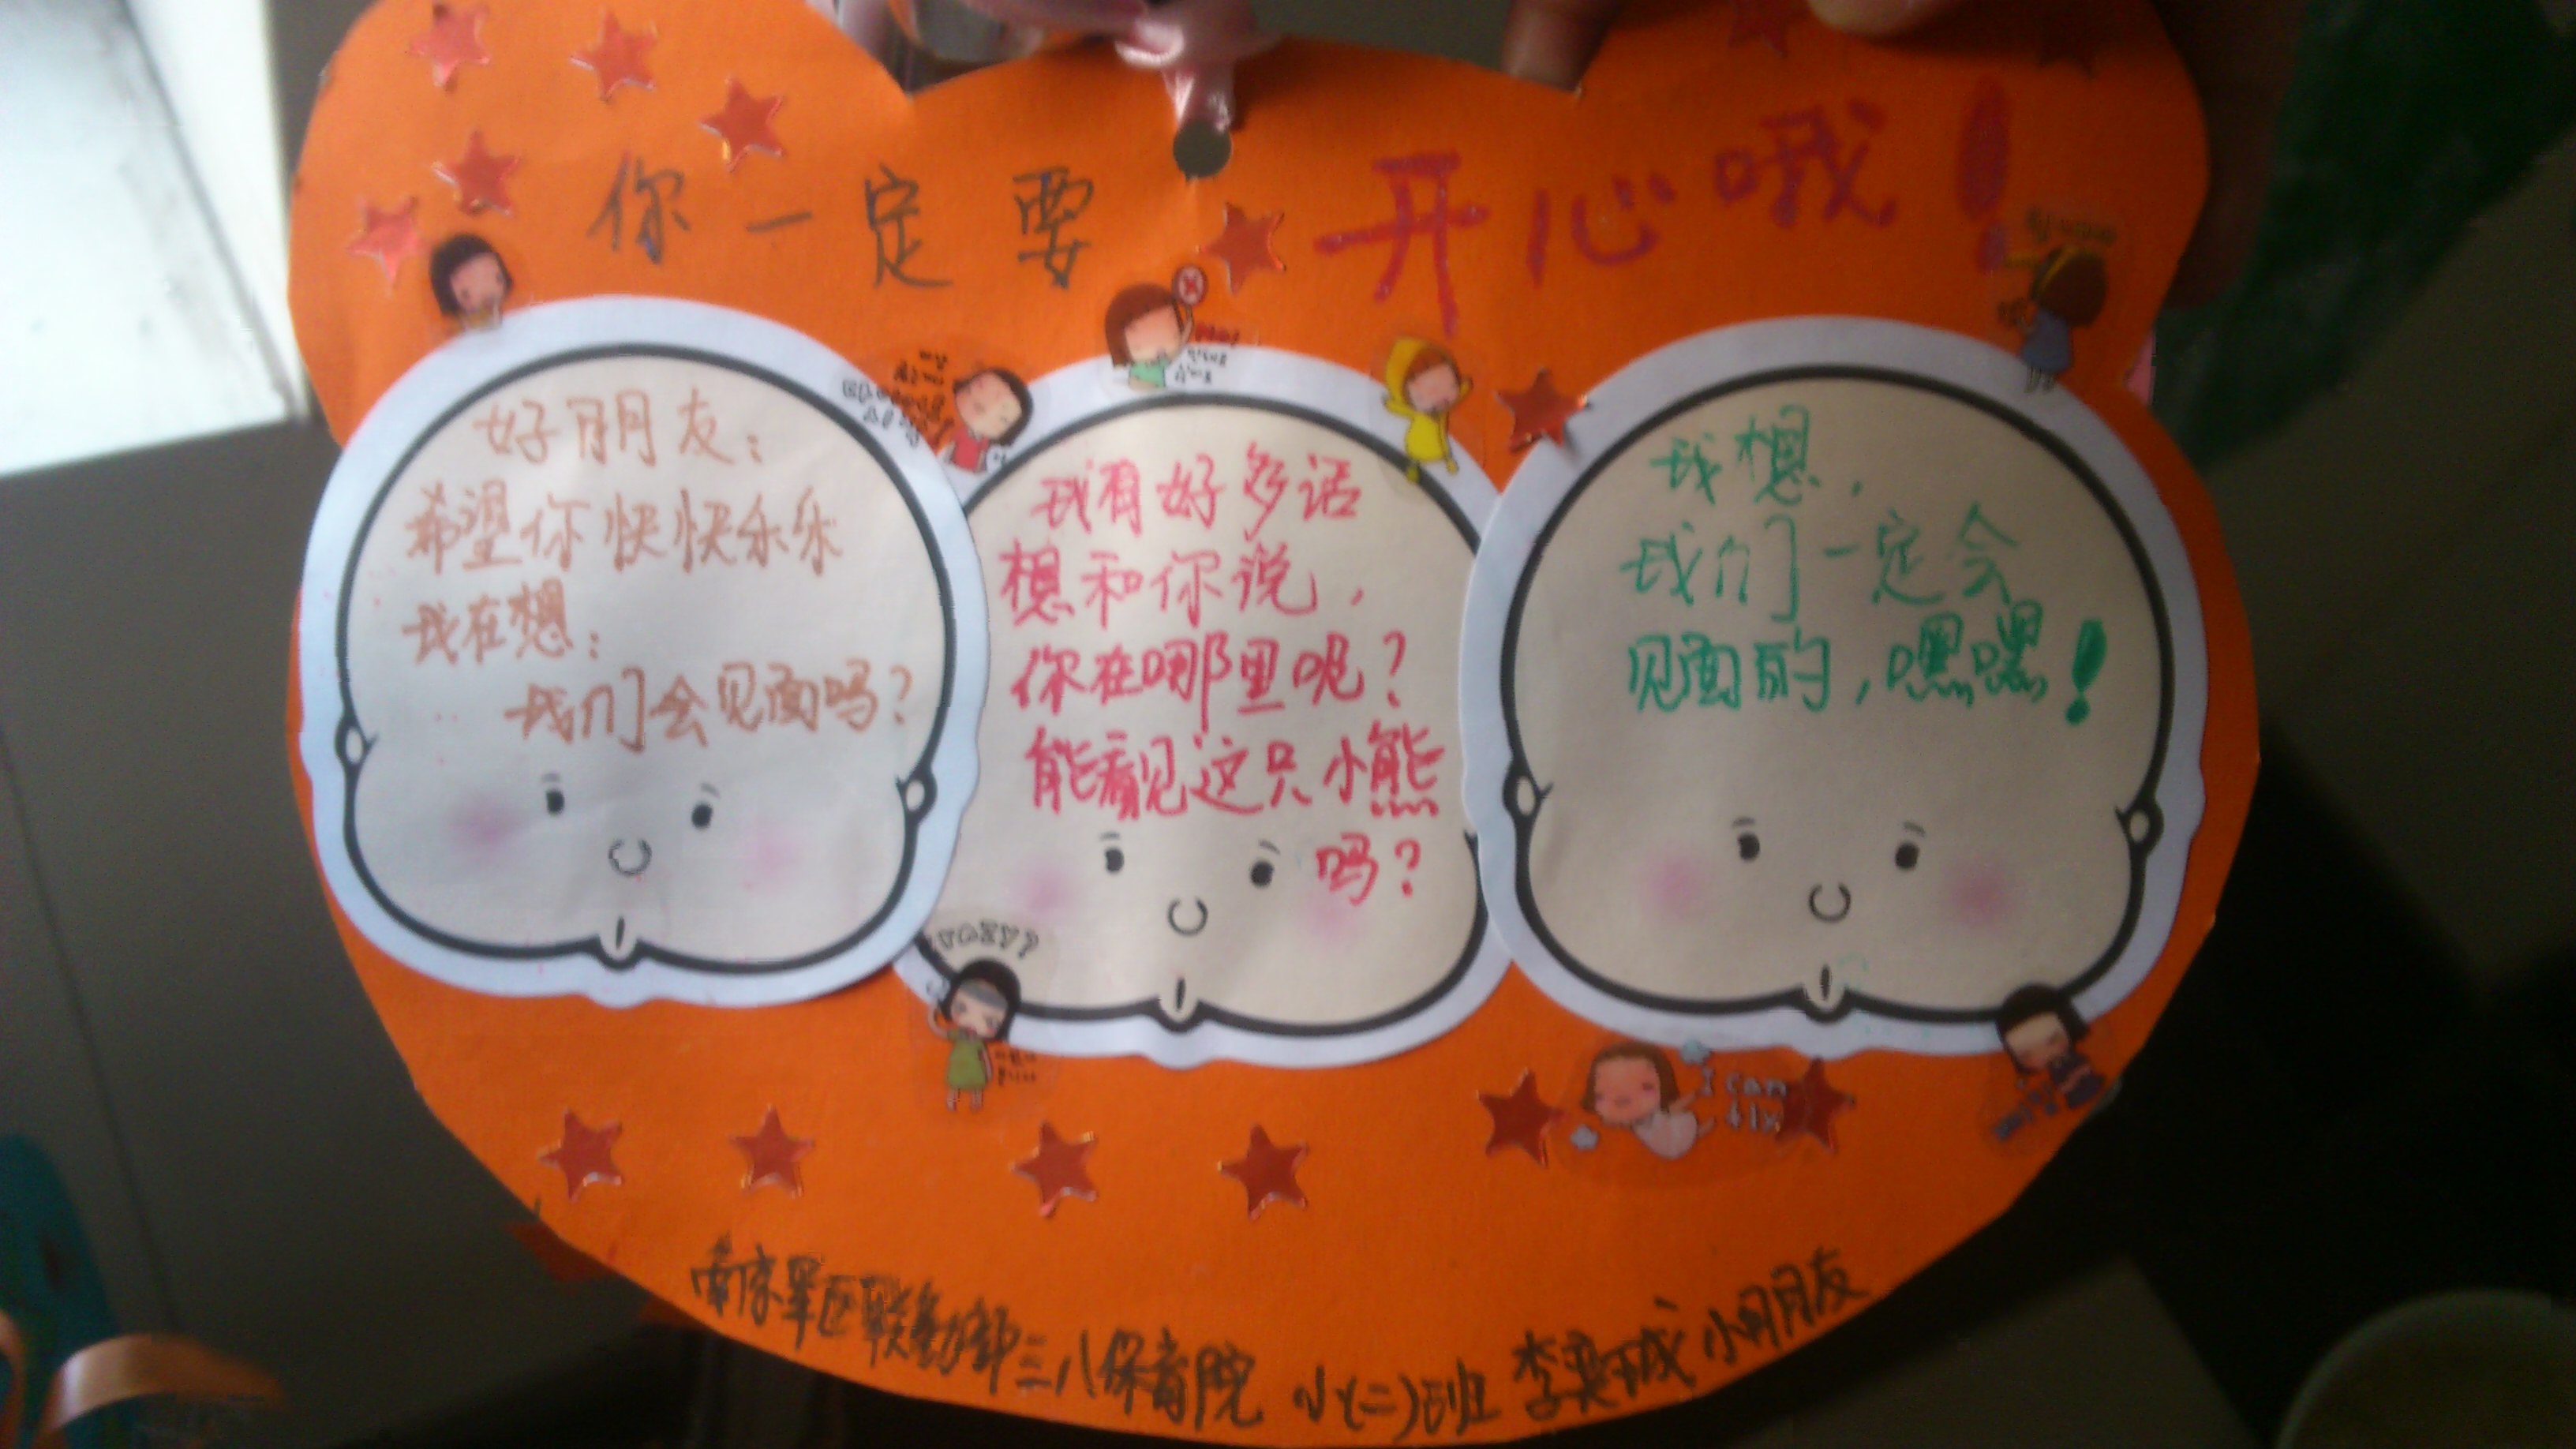 你一定要开心哦！
好朋友：
希望你快快乐乐
我在想：
我们会见面吗？
我有好多话
想和你说，
你在哪里呢？
能看见这只小熊
吗？
我想，
我们一定会
见面的，嘿嘿！
I can
南京军区联勤部三八保育院 小(二)班 李 小朋友